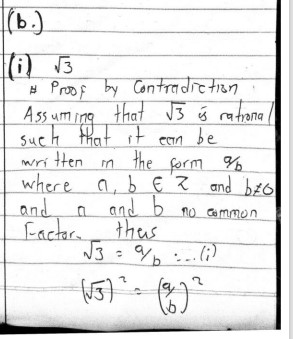 (b.)
(i) √3
# Proof by Contradiction.
Assuming that √3 is rational
such that it can be
written in the form a/b
where a, b ∈ Z and b≠0
and a and b no common
Factor. thus
√3 = a/b :...(i)
(√3)² = (a/b)²